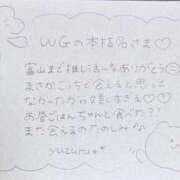 WGの本指名さま♡
富山まで推し活ーなありがとう
まさかこっちで会えると思って
なかったから嬉しすぎる♡♡
お昼ごはんちゃんと食べた??
また会えるのたのしみな
yuzuru**